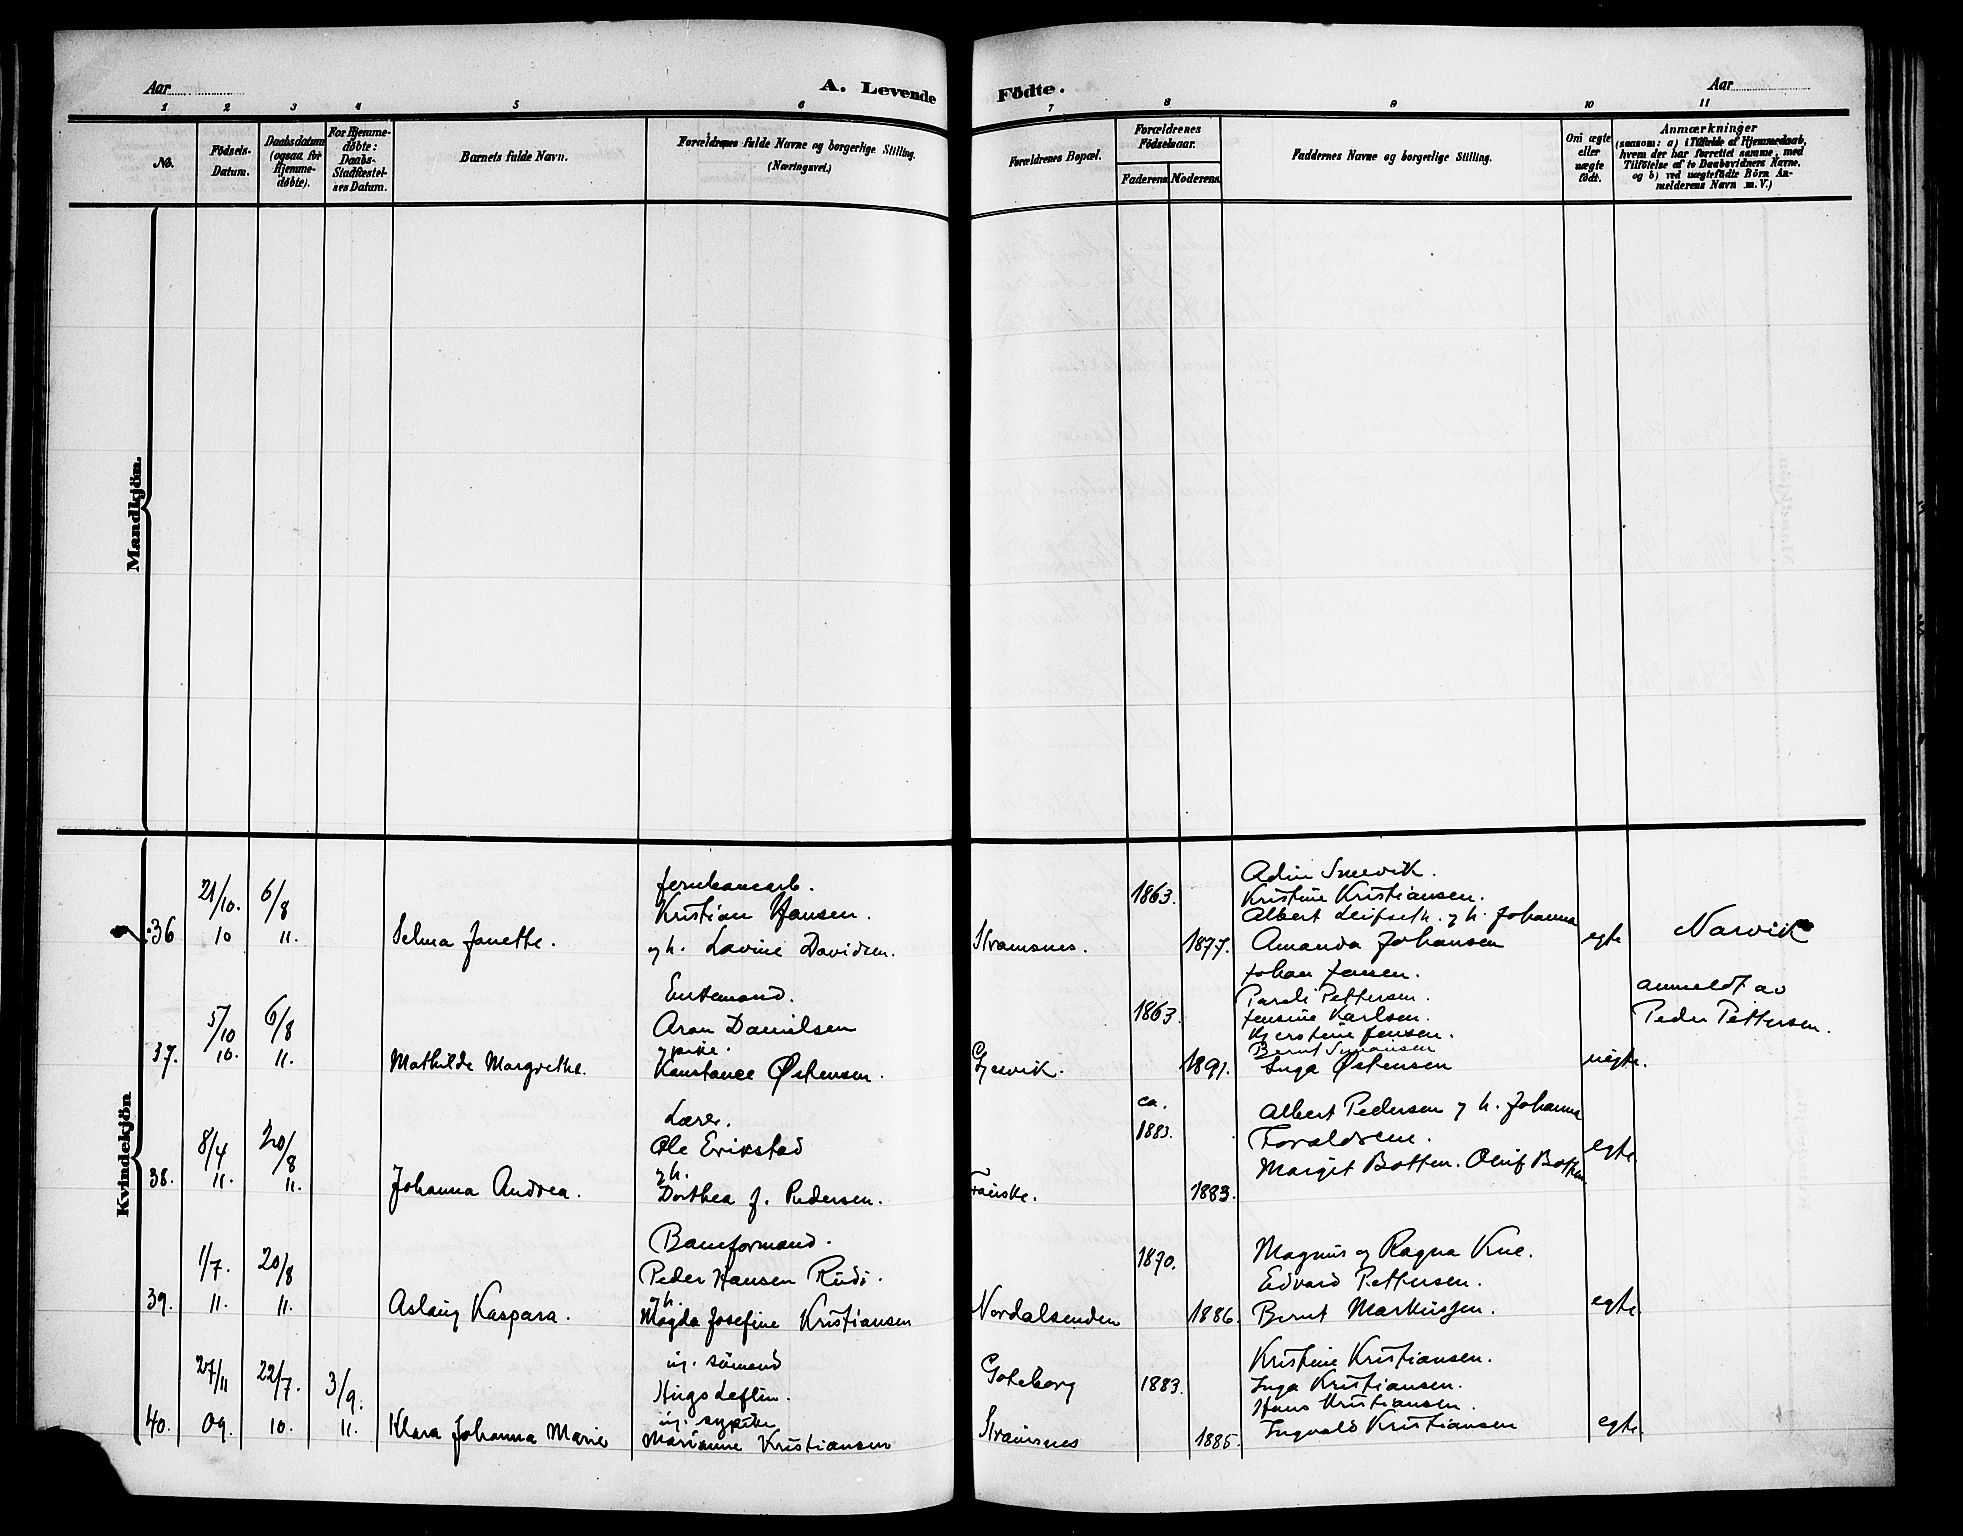 Aar
A. Levende
Födte.
Aar
1 2 3 4 5 6 7 8 9 10 11
No.
Födsels-
Datum.
Daabsdatum
(ogsaa for
Hjemme-
døbte).
For Hjemme-
døbte:
Daabs-
Stadfæstel-
ses Datum.
Barnets fulde Navn.
Forældrenes fulde Navne og borgerlige Stilling.
(Næringsvei.)
Forældrenes Bopæl.
Forældrenes
Födselsaar.
Faderens
Moderens
Faddernes Navne og borgerlige Stilling.
Om ægte
eller
uægte
födt.
Anmærkninger
(saasom: a) i Tilfælde af Hjemmedaab,
hvem der har forrettet samme, med
Tilföielse af to Daabsvidners Navne,
og b) ved uægtefödte Börn An-
melderens Navn m. V.)
Mandkjön.
Kvindekjön
36
21/10.
10
6/8
11.
Selma Janette.
Kristian Hansen.
og h. Lavine Davidsen.
Stramsnes.
1863.
1877.
Kristine Kristiansen.
Albert Leifseth. og h. Johanna
Amanda Johansen
egte
Narvik
37.
5/10
10.
6/8
11.
Mathilde Margrethe.
Enkemand.
Aron Danielsen
og pike.
Konstance Østensen.
Gjesvik.
1863.
1891.
Johan Jensen.
Pareli Pettersen.
Jensine Karlsen.
Kjerstine Jensen.
Bernt Simonsen
Inga Østensen
uegte.
anmeldt av
Peder Pettersen.
38.
8/4
11.
20/8
11.
Johanna Andrea.
Lærer.
Ole Erikstad
og h.
Dorthea f. Pedersen.
Fauske.
ca.
1883.
1883.
Albert Pedersen og h. Johanna
Foraldrene.
Margit Botten. Oluf Botten
egte
39.
1/7.
11.
20/8
11.
Aslaug Kaspara.
Baneformand.
Peder Hansen Rudi.
og h.
Magda Josefine Kristiansen
Nordalsenden
1870.
1886.
Magnus og Ragna Kne.
Edvard Pettersen.
Bernt Markussen.
egte
40.
27/11
09.
22/7.
10.
3/9.
11.
Klara Johanna Marie
ug. sømand
Hugo Leflin.
ug. sypike
Marianne Kristiansen
Goteborg
Stramsnes
1883.
1885.
Kristine Kristiansen.
Inga Kristiansen.
Hans Kristiansen.
Ingvald Kristiansen
egte